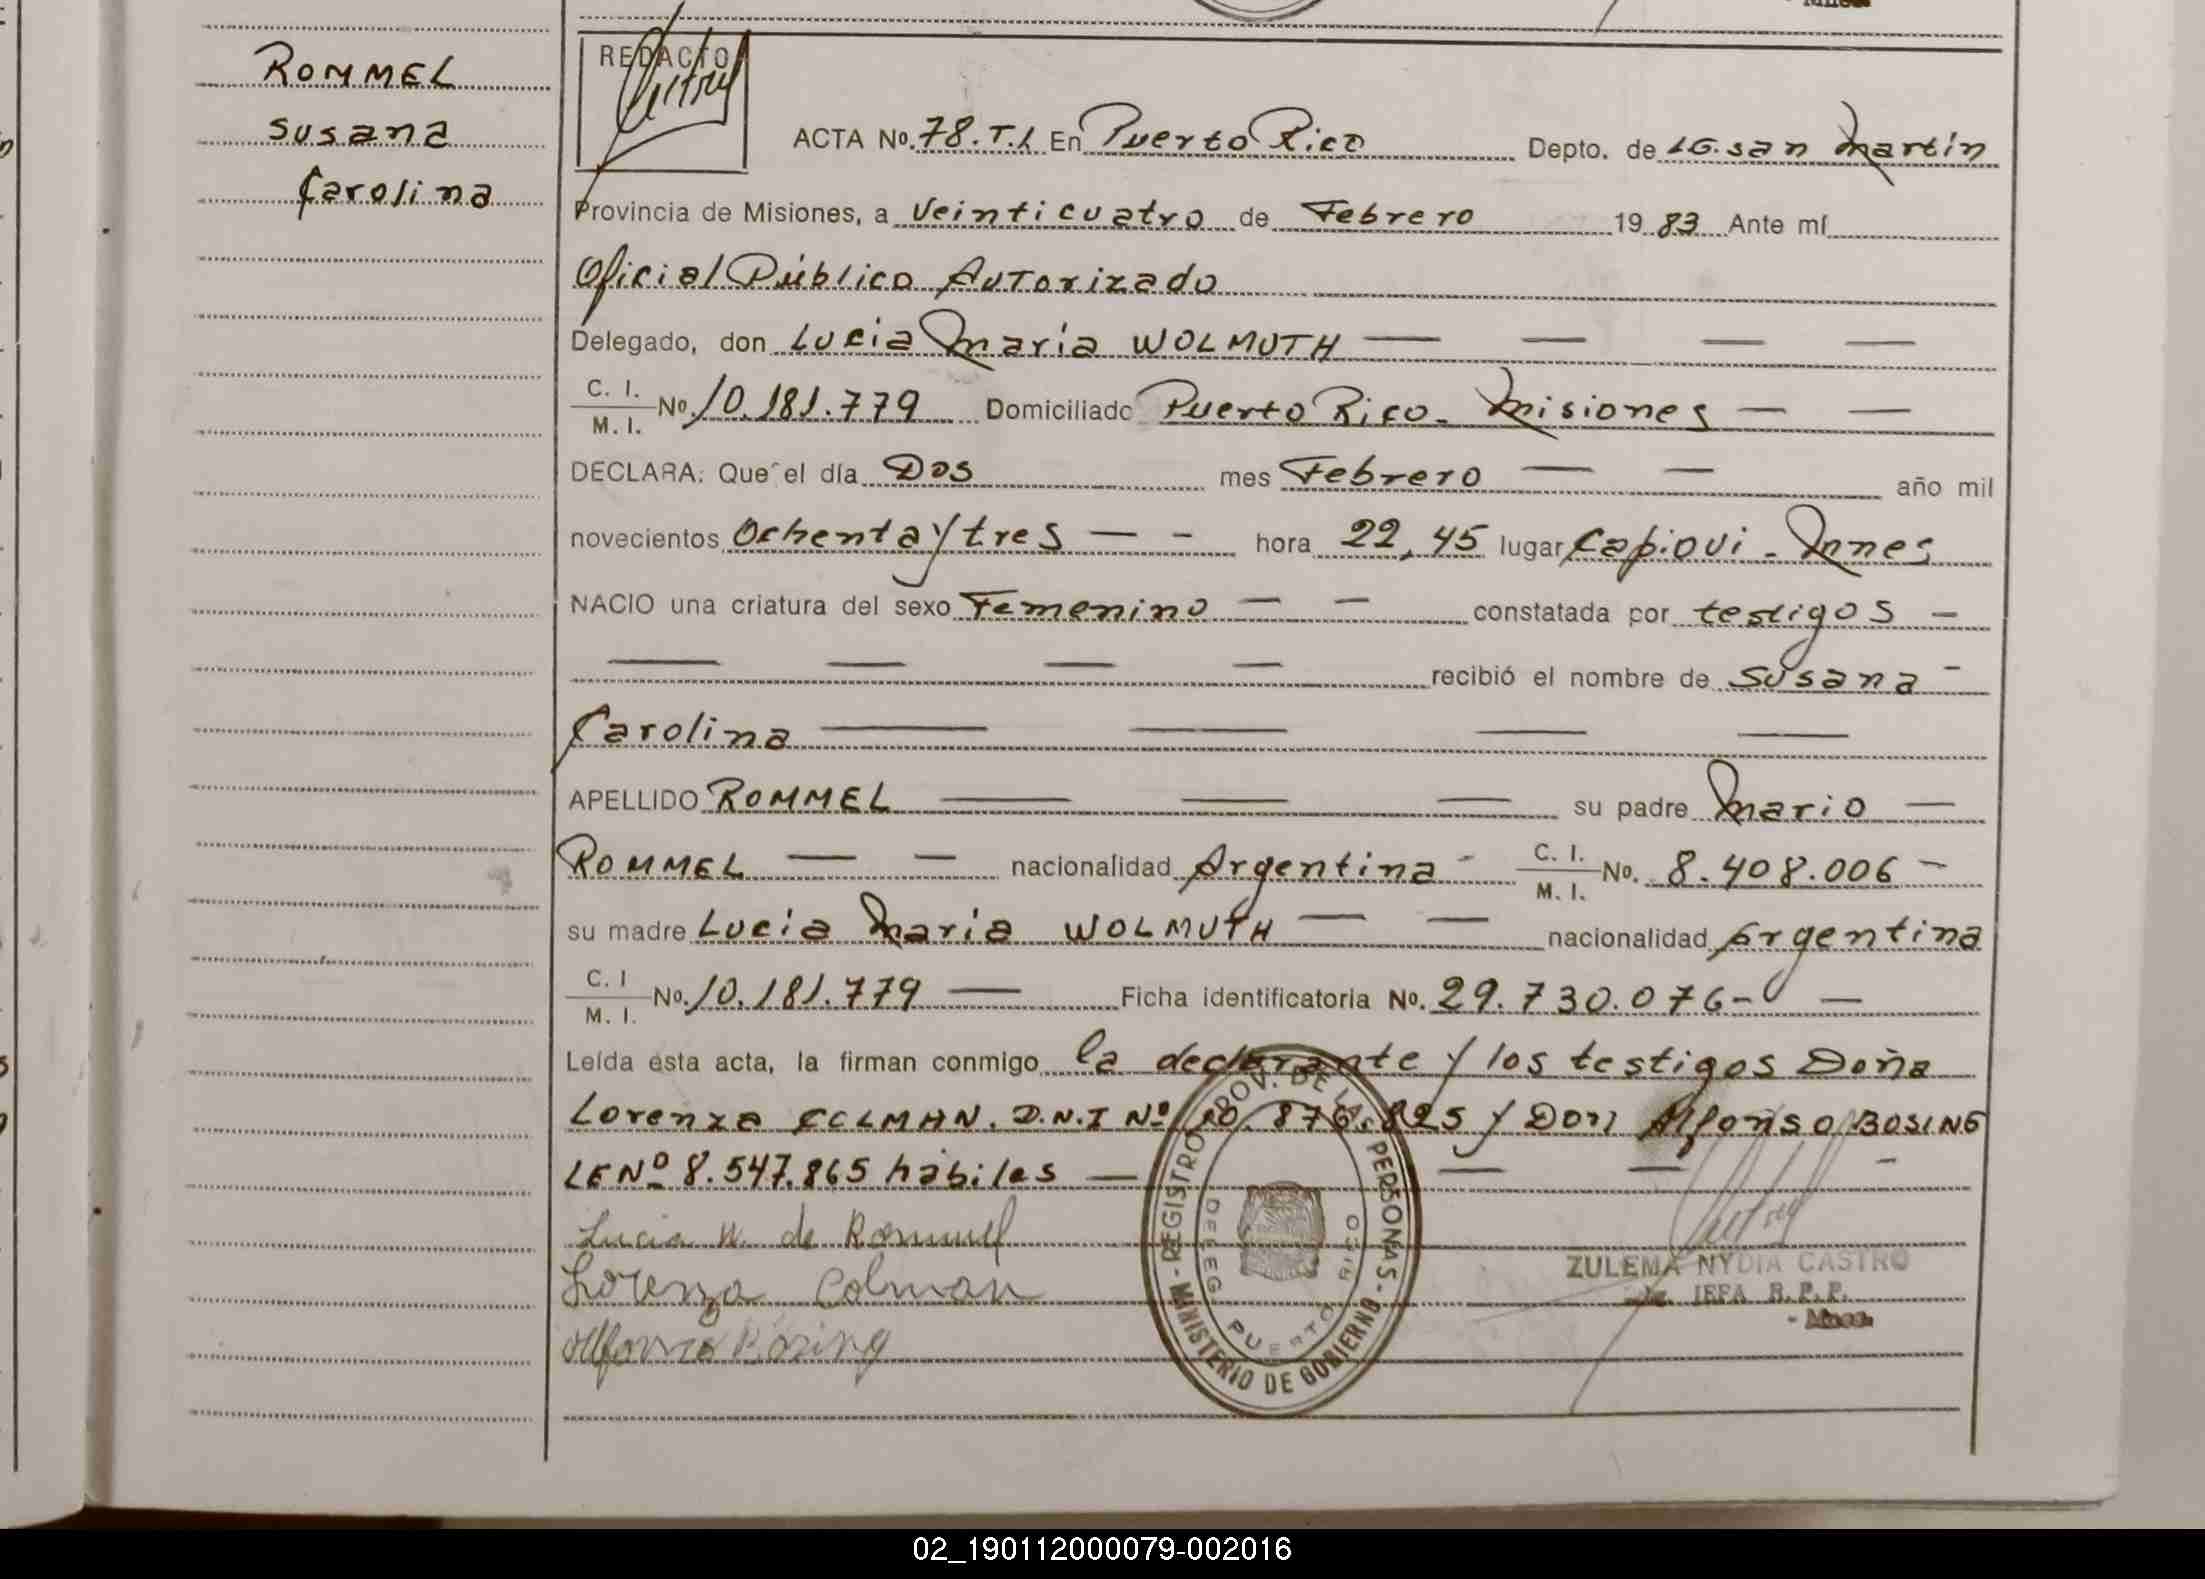 ROMMEL
Susana
Carolina
REDACTO
ACTA No. 78. T.I. En Puerto Rico Depto. de LG. San Martín
Provincia de Misiones, a Veinticuatro de Febrero 19 83 Ante mí
Oficial Público Autorizado
Delegado, don Lucia María WOLMUTH — — — —
C. I. / M. I. No. 10.181.779 Domiciliado Puerto Rico - Misiones — —
DECLARA: Que el día Dos mes Febrero — — año mil
novecientos Ochenta y tres — - hora 22,45 lugar Capiovi - Mnes
NACIO una criatura del sexo Femenino — — constatada por testigos —
— — — — recibió el nombre de Susana -
Carolina — — — —
APELLIDO ROMMEL — — — su padre Mario —
ROMMEL — — nacionalidad Argentina - C. I. / M. I. No. 8.408.006 -
su madre Lucia María WOLMUTH — — nacionalidad Argentina
C. I / M. I. No. 10.181.779 — Ficha identificatoria No. 29.730.076- —
Leída esta acta, la firman conmigo la declarante y los testigos Doña
Lorenza COLMAN. D.N.I Nº 10.876.825 y Don Alfonso BOSING
LE Nº 8.547.865 hábiles — — — -
Lucia W. de Rommel
Lorenza Colman
Alfonso Bosing
MINISTERIO DE GOBIERNO - REGISTRO PROV. DE LAS PERSONAS -
DELEG PUERTO RICO
ZULEMA NYDIA CASTRO
JEFA R.P.P.
- Mnes.
02_190112000079-002016